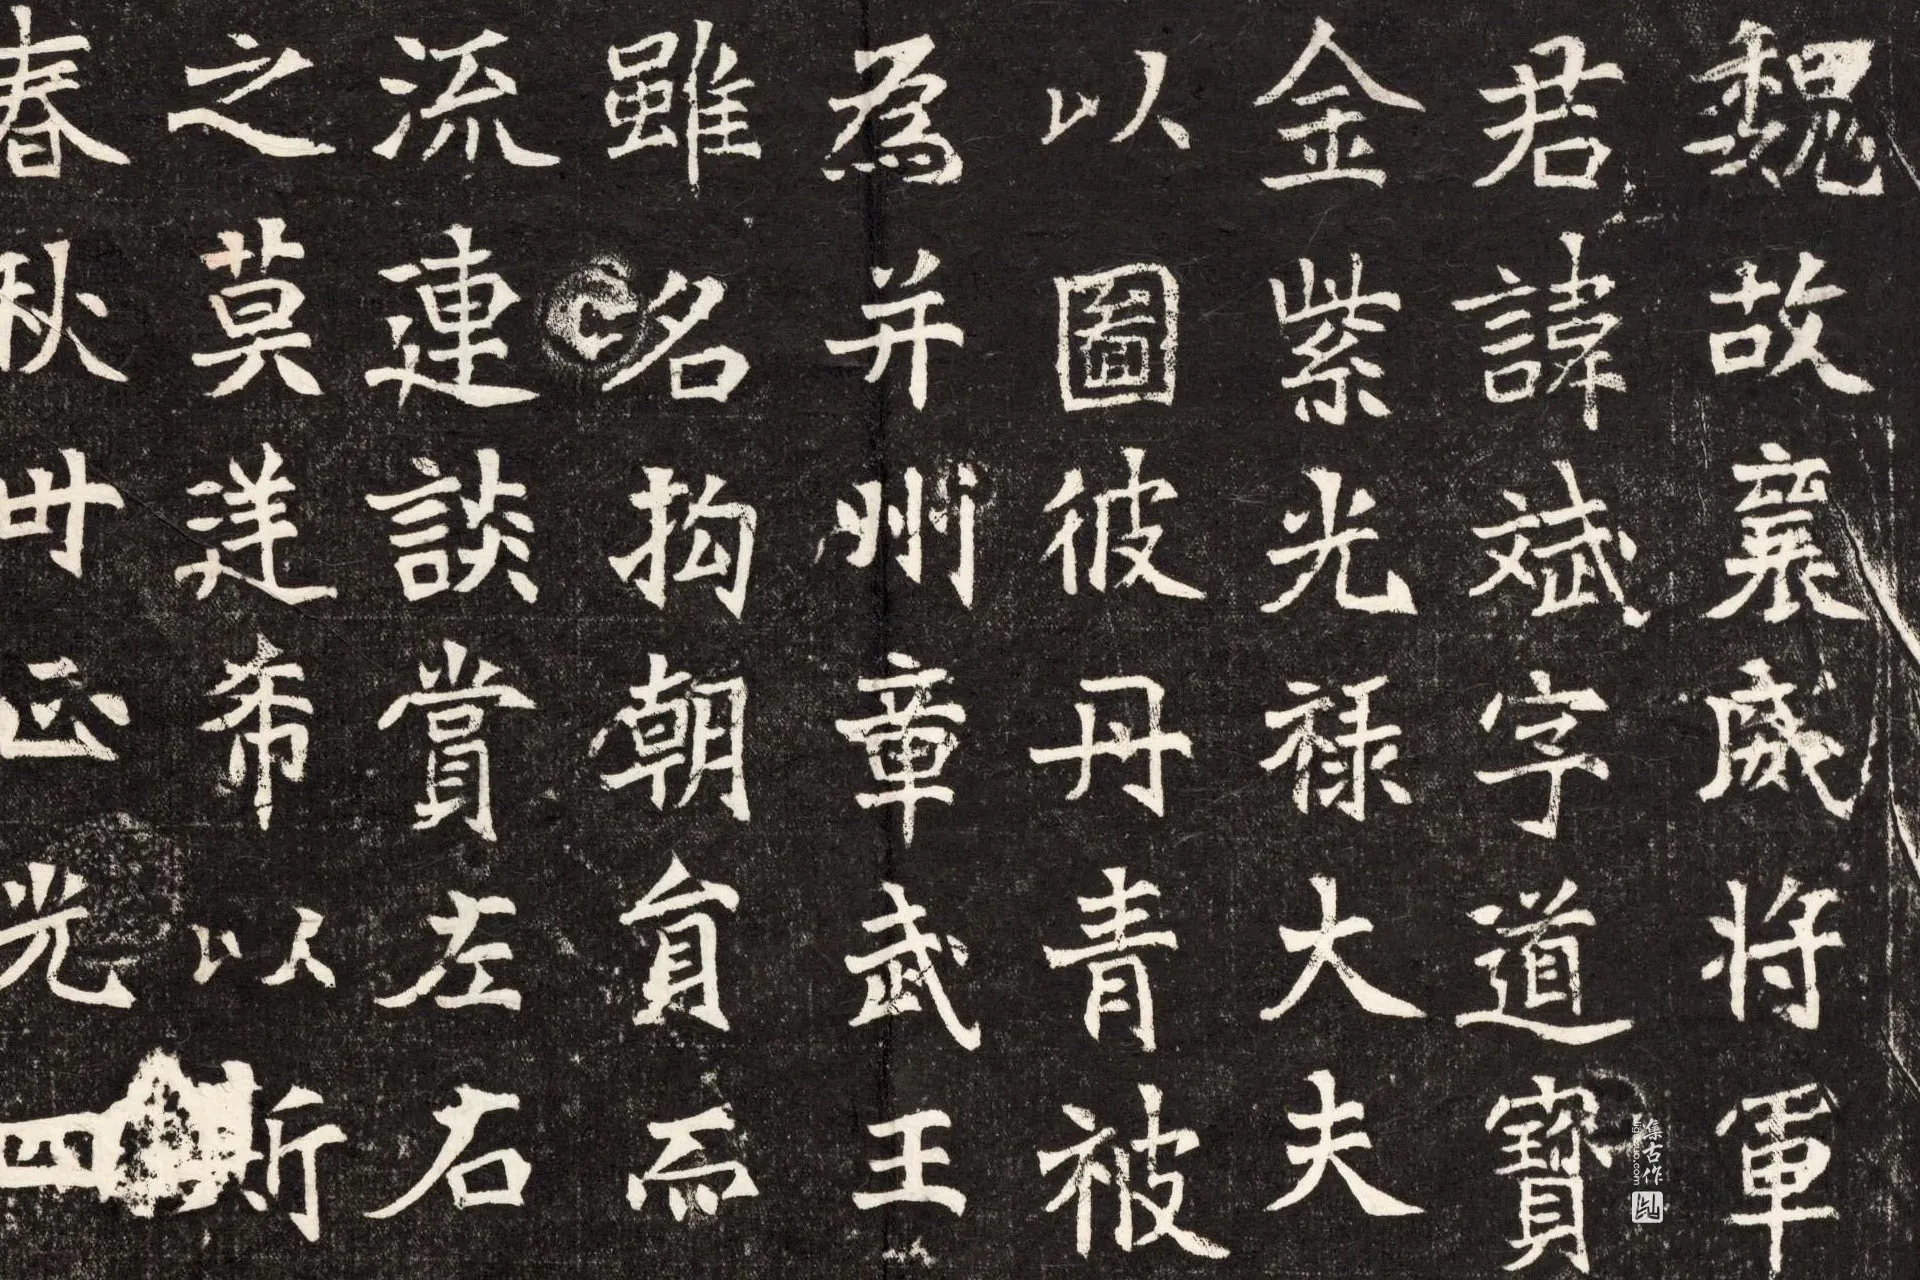 魏故襄威將軍
君諱斌字道寶
金紫光祿大夫
以圖彼丹青被
為并州章武王
雖名拘朝員而
流連談賞左右
之莫逆希以斯
春秋卌正光四
集古作